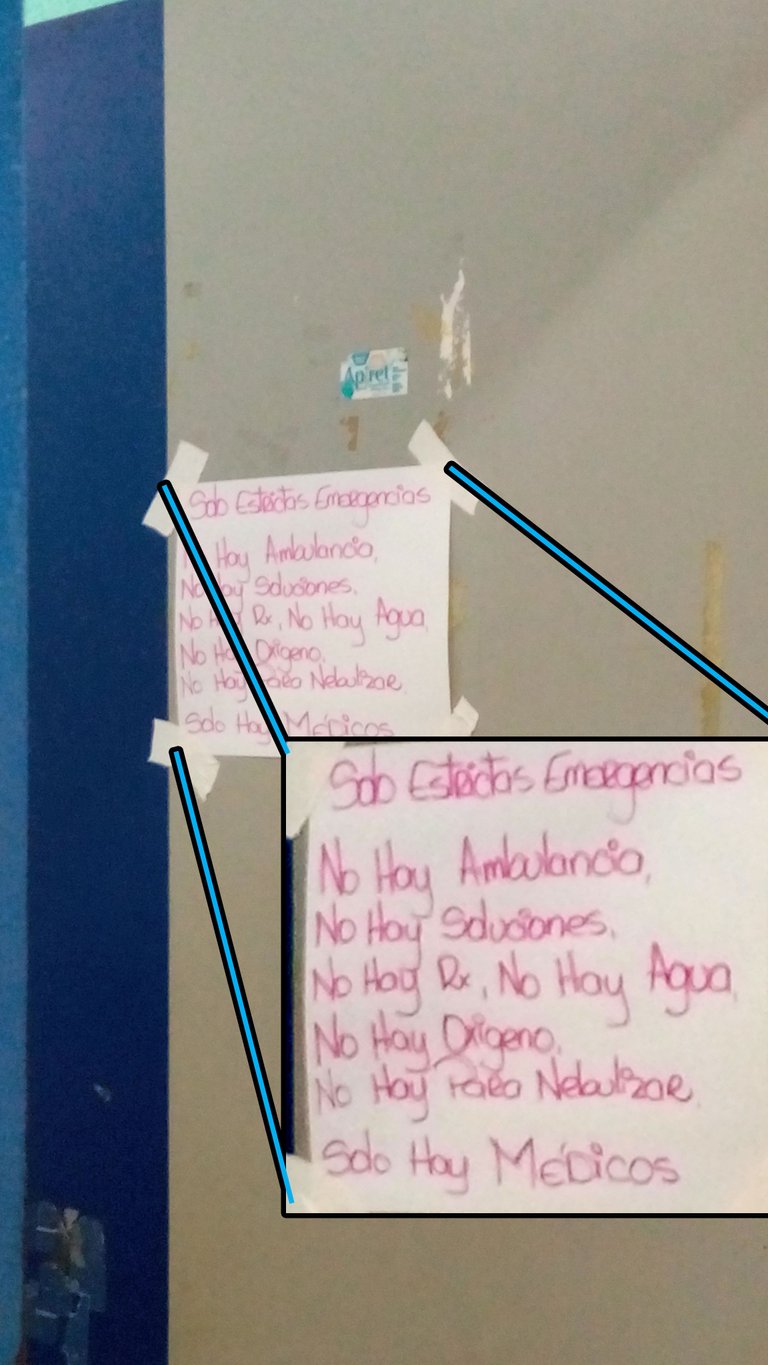 Apiret
Solo Estrictas Emergencias
No Hay Ambulancia,
No Hay Soluciones.
No Hay Rx, No Hay Agua,
No Hay Oxigeno,
No Hay Para Nebulizar.
Solo Hay MéDicos
Solo Estrictas Emergencias
No Hay Ambulancia,
No Hay Soluciones.
No Hay Rx, No Hay Agua,
No Hay Oxigeno,
No Hay Para Nebulizar.
Solo Hay MéDicos